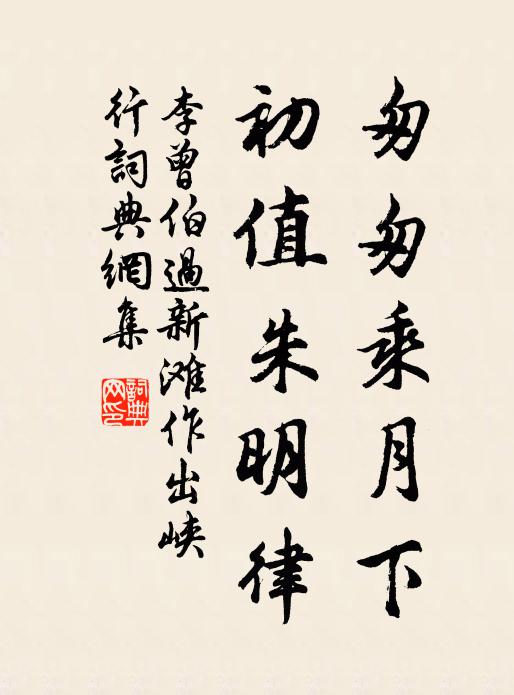 匆匆乘月下
初值朱明律
李曾伯過新滩作出峡
行詞典網集
詞典
网印